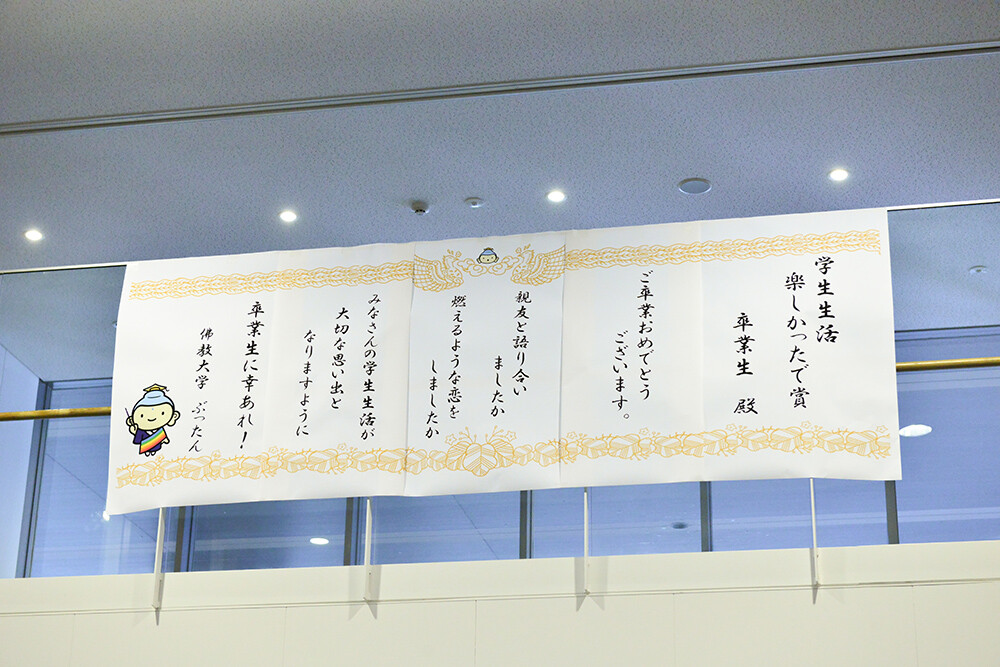 学生生活
楽しかったで賞
卒業生 殿
ご卒業おめでとう
ございます。
親友と語り合い
ましたか
燃えるような恋を
しましたか
みなさんの学生生活が
大切な思い出と
なりますように
卒業生に幸あれ!
佛教大学 ぶったん